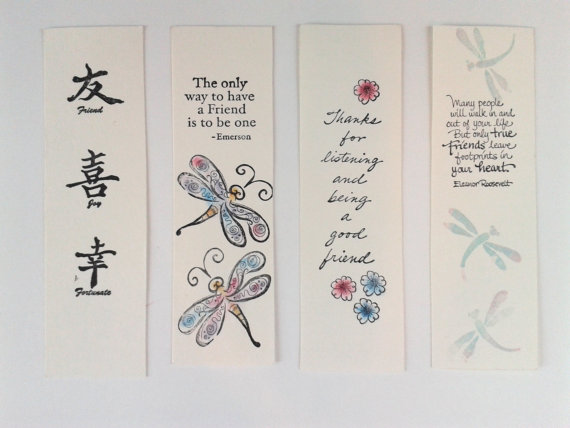 友
Friend
喜
Joy
幸
Fortunate
The only
way to have
a Friend
is to be one
-Emerson
Thanks
for
listening
and
being
a
good
friend
Many people
will walk in and
out of your life
But only true
friends leave
footprints in
your heart.
Eleanor Roosevelt